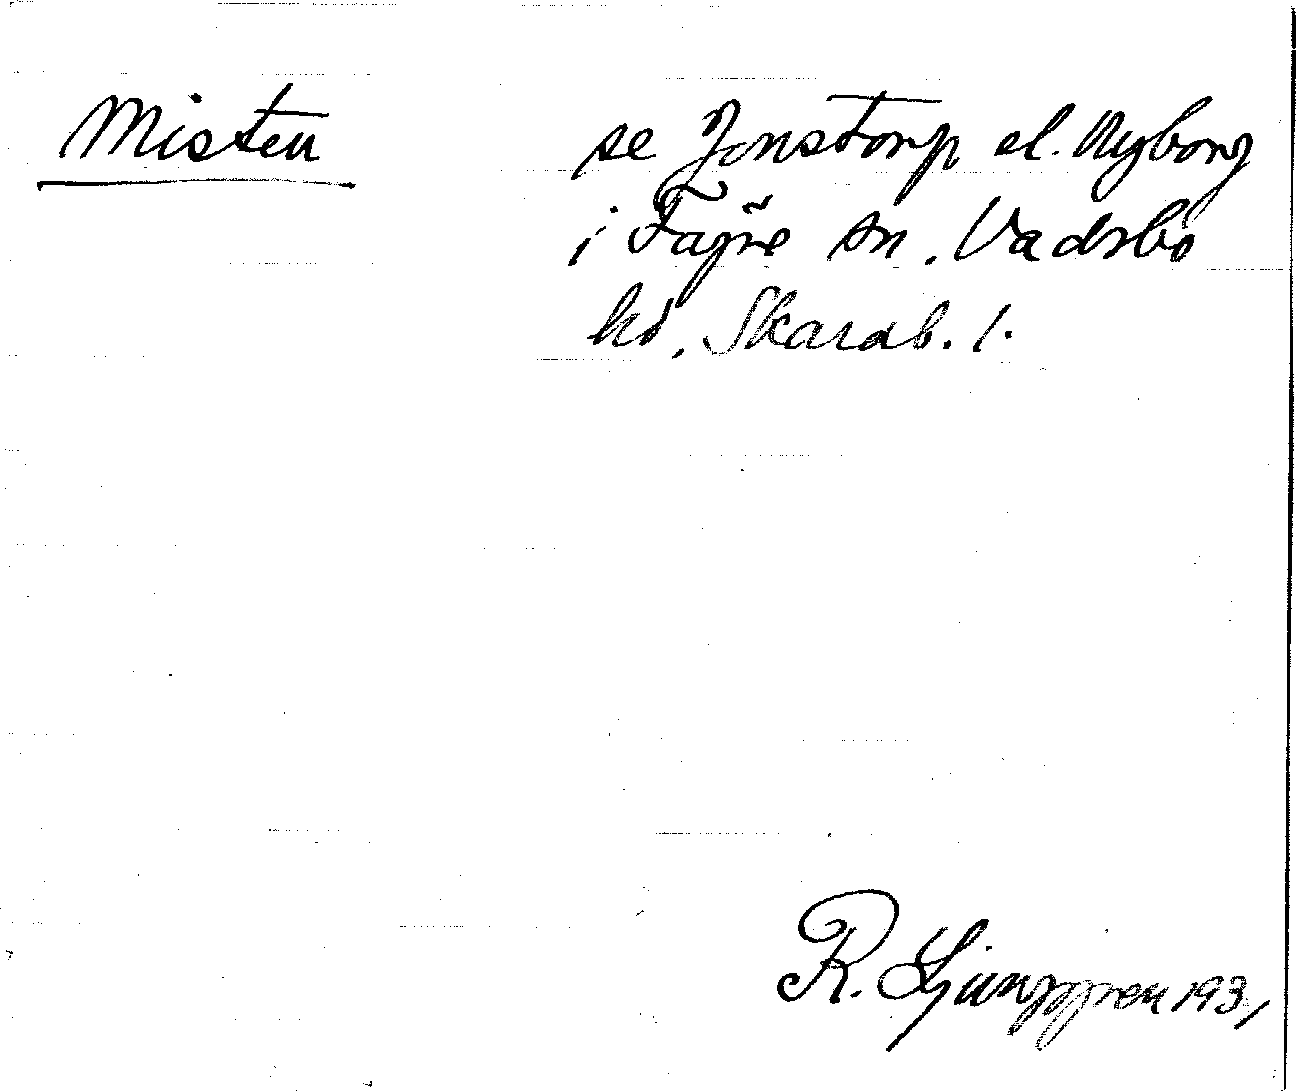 Misten se Jonstorp el. Nyborg
i Fägre sn. Vadsbo
hd. Skarab. l.
R. Ljunggren 1931